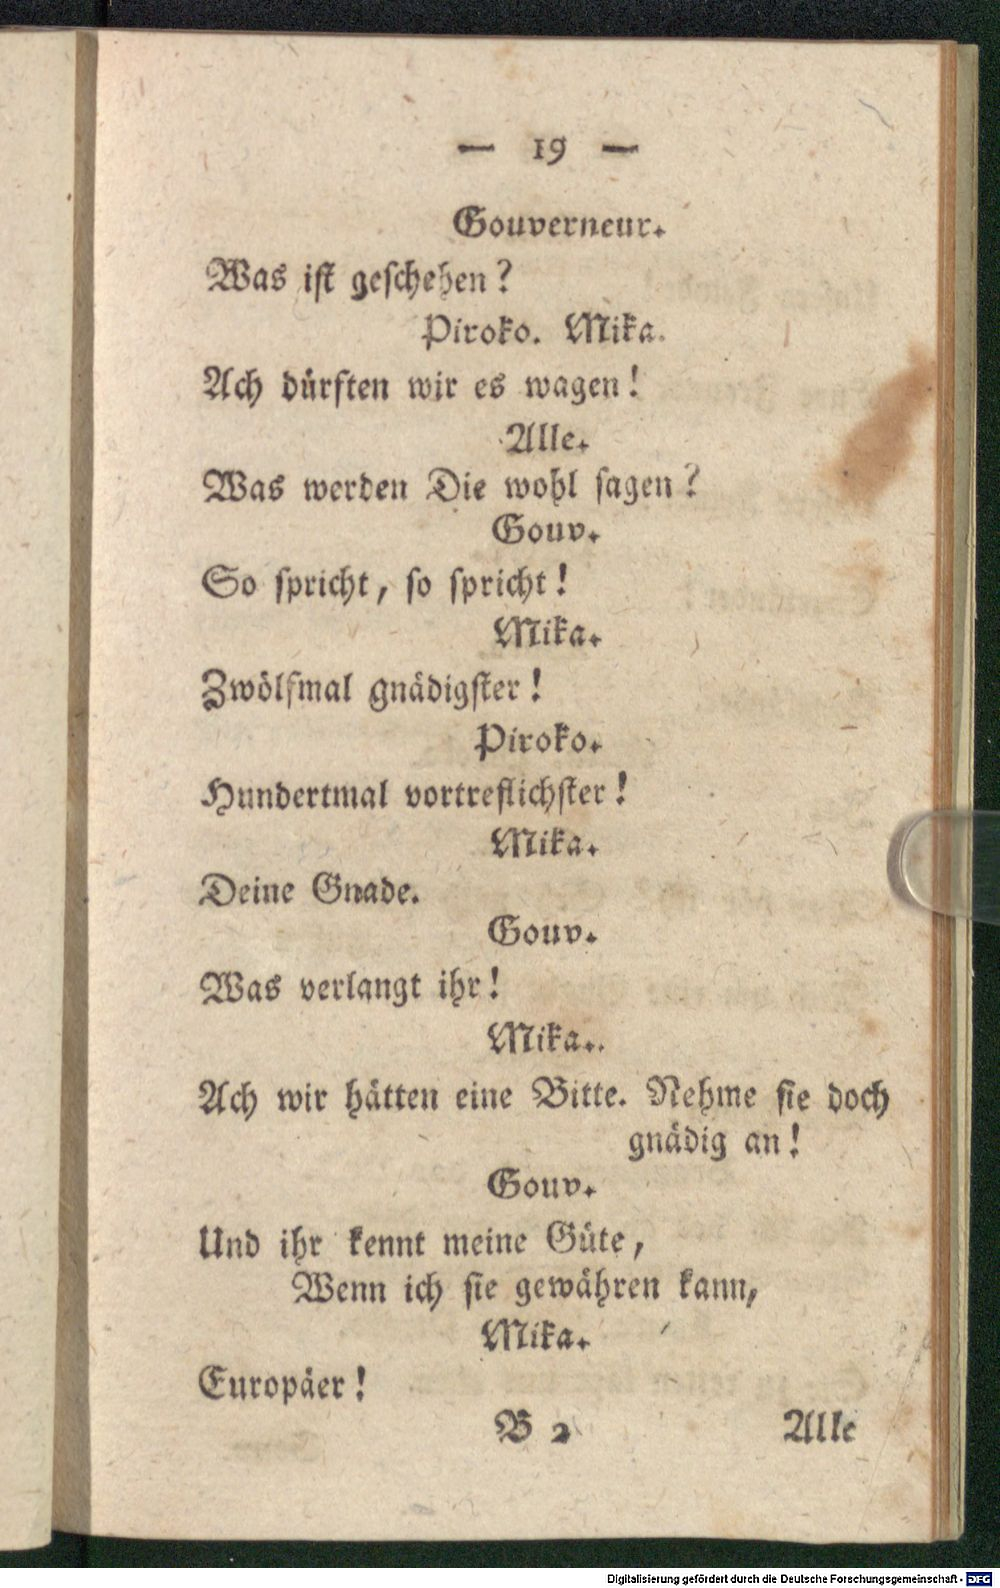 — 19 —
Gouverneur.
Was iſt geſchehen?
Piroko. Mika.
Ach dürften wir es wagen!
Alle.
Was werden Die wohl ſagen?
Gouv.
So ſpricht, ſo ſpricht!
Mika.
Zwölfmal gnädigſter!
Piroko.
Hundertmal vortreflichſter!
Mika.
Deine Gnade.
Gouv.
Was verlangt ihr!
Mika..
Ach wir hätten eine Bitte. Nehme ſie doch
gnädig an!
Gouv.
Und ihr kennt meine Güte,
Wenn ich ſie gewähren kann,
Mika.
Europäer!
B 2 Alle
Digitalisierung gefördert durch die Deutsche Forschungsgemeinschaft - DFG